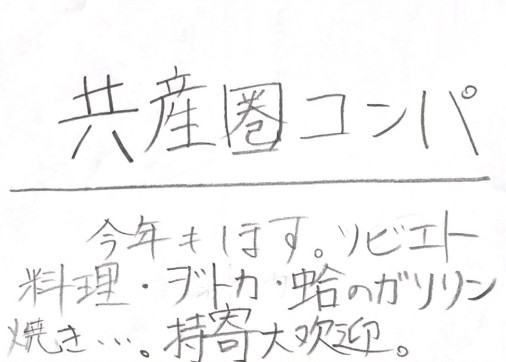 共産圏コンパ
今年もほす。ソビエト
料理・ヺトカ・蛤のガソリン
焼き…。持寄大欢迎。